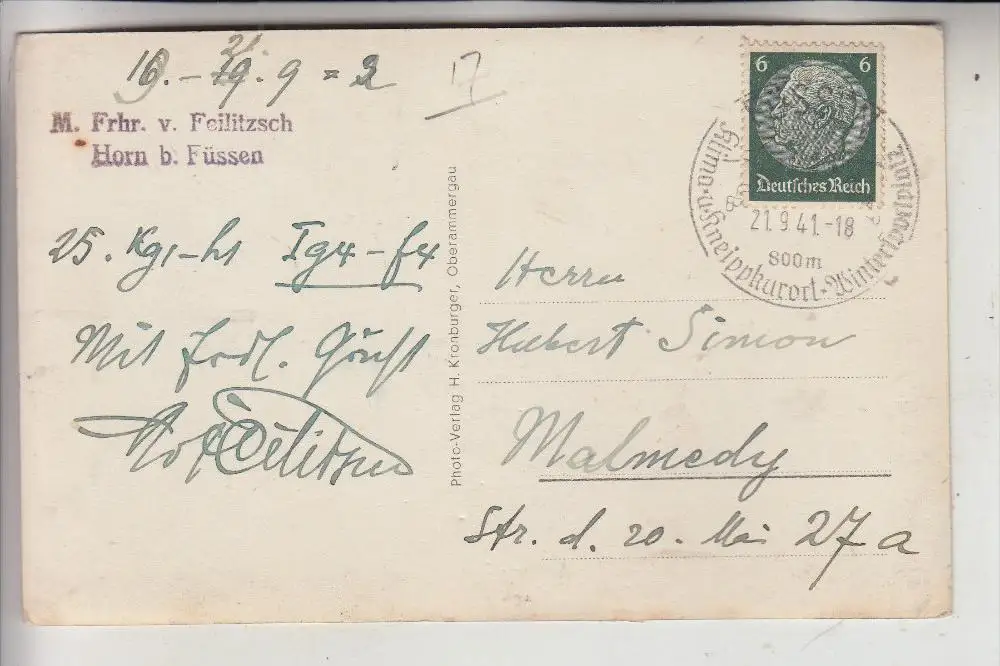 16. - 21. 9 = 2
17
M. Frhr. v. Feilitzsch
Horn b. Füssen
25. Kg1-h1 Tg4-f4
Mit frdl. Gruß
v. Feilitzsch
Photo-Verlag H. Kronburger, Oberammergau
6 6
Deutsches Reich
21.9.41.-18
800m
Klima- u. Kneippkurort · Wintersportplatz
Herrn
Hubert Simon
Malmedy
Str. d. 20. Mai 27a